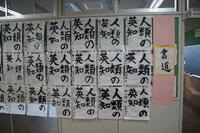 書道
人類の
英知
人類の
英知
人類の
英知
人類の
英知
人類の
英知
人類の
英知
人類の
英知
人類の
英知
人類の
英知
人類の
英知
人類の
英知
人類の
英知
人類の
英知
人類の
英知
人類の
英知
人類の
英知
人類の
英知
人類の
英知